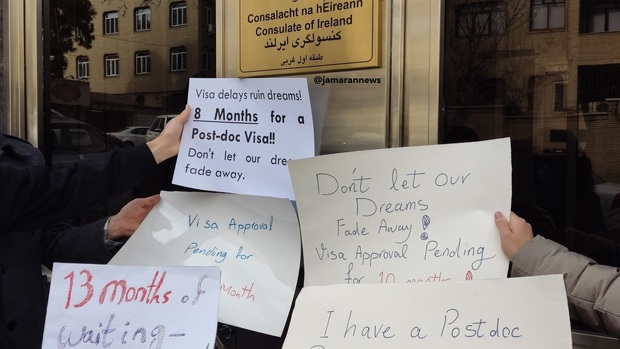 Consalacht na hÉireann
Consulate of Ireland
کنسولگری ایرلند
طبقه اول غربی
@jamarannews
Visa delays ruin dreams!
8 Months for a
Post-doc Visa!!
Don't let our dre
fade away.
Don't let Our
Dreams
Fade Away!
Visa Approval Pending
for 10 months!
Visa Approval
Pending for
Month
13 months of
waiting-
I have a Postdoc